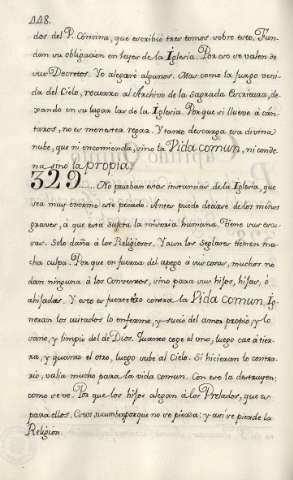 448.
dor del P. Concina, que escribió tres tomos sobre esto. Fun-
dan su obligacion en leyes de la Iglesia. Por eso se valen de
sus Decretos. Yo alegaré algunos. Mas como la fuerza veni-
da del Cielo, recurren al Archivo de la Sagrada Escritura, de-
xando en su lugar las de la Iglesia. Porque si llueve á cán-
taros, no es menester regar. Y tanto descarga esa divina
nube, que ni encomienda, sino la Vida común, ni conde
na sino la propia.
329..... No prueban estas instancias de la Iglesia, que
sea muy enorme este pecado. Antes puede decirse de los menos
graves, á que está sujeta la miseria humana. Tiene sus escu
sas. Solo daña á los Religiosos. Y aun los Seglares tienen mu-
cha culpa. Porque en fuerza del apego á sus cosas, muchos no
dan ninguna á los Conventos, sino para sus hijos, hijas, ó
ahijados. Y esto es fuerte contra la Vida comun. Ig-
noran los cuitados lo enfermo, y sucio del amor propio, y lo
sano, y limpio del de Dios. Quanto coge el uno, luego cae á tie-
rra, y quanto el otro, luego sube al Cielo. Si hicieran lo contra-
rio, valia mucho para la vida comun. Con eso la destruyen;
como se ve. Por que los hijos alegan á los Prelados, que es
para ellos. porque no se pierda: y asi se pierde la
Religion.